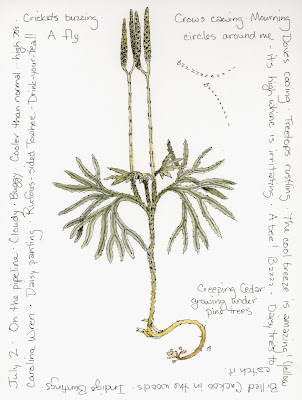 July 2 · On the pipeline · Cloudy · Buggy · Cooler than normal - high 70s ·
Carolina Wren · Daisy panting · Rufous-sided Towhee - Drink-your-Tea!!
Crickets buzzing
A fly
Crows cawing · Mourning
circles around me
Doves cooing · Treetops rustling · The cool breeze is amazing! Yellow
- its high whine is irritating · A bee! Bzzzz · Daisy tries to
catch it.
Billed Cuckoo in the woods · Indigo Buntings
Creeping Cedar
growing under
pine trees